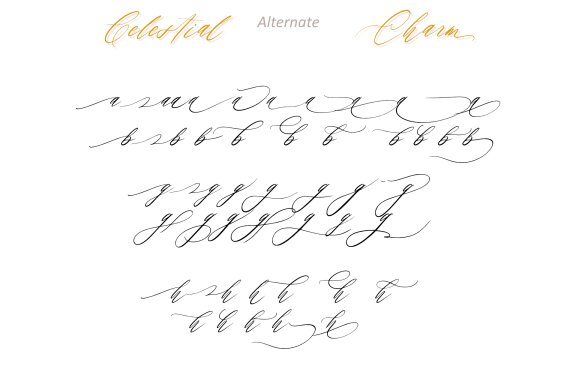 Celestial Alternate Charm
a a a a a a a a a a
b b b b b b b b b b
g g g g g g g
g g g g g g g
h h h h h h
h h h h h